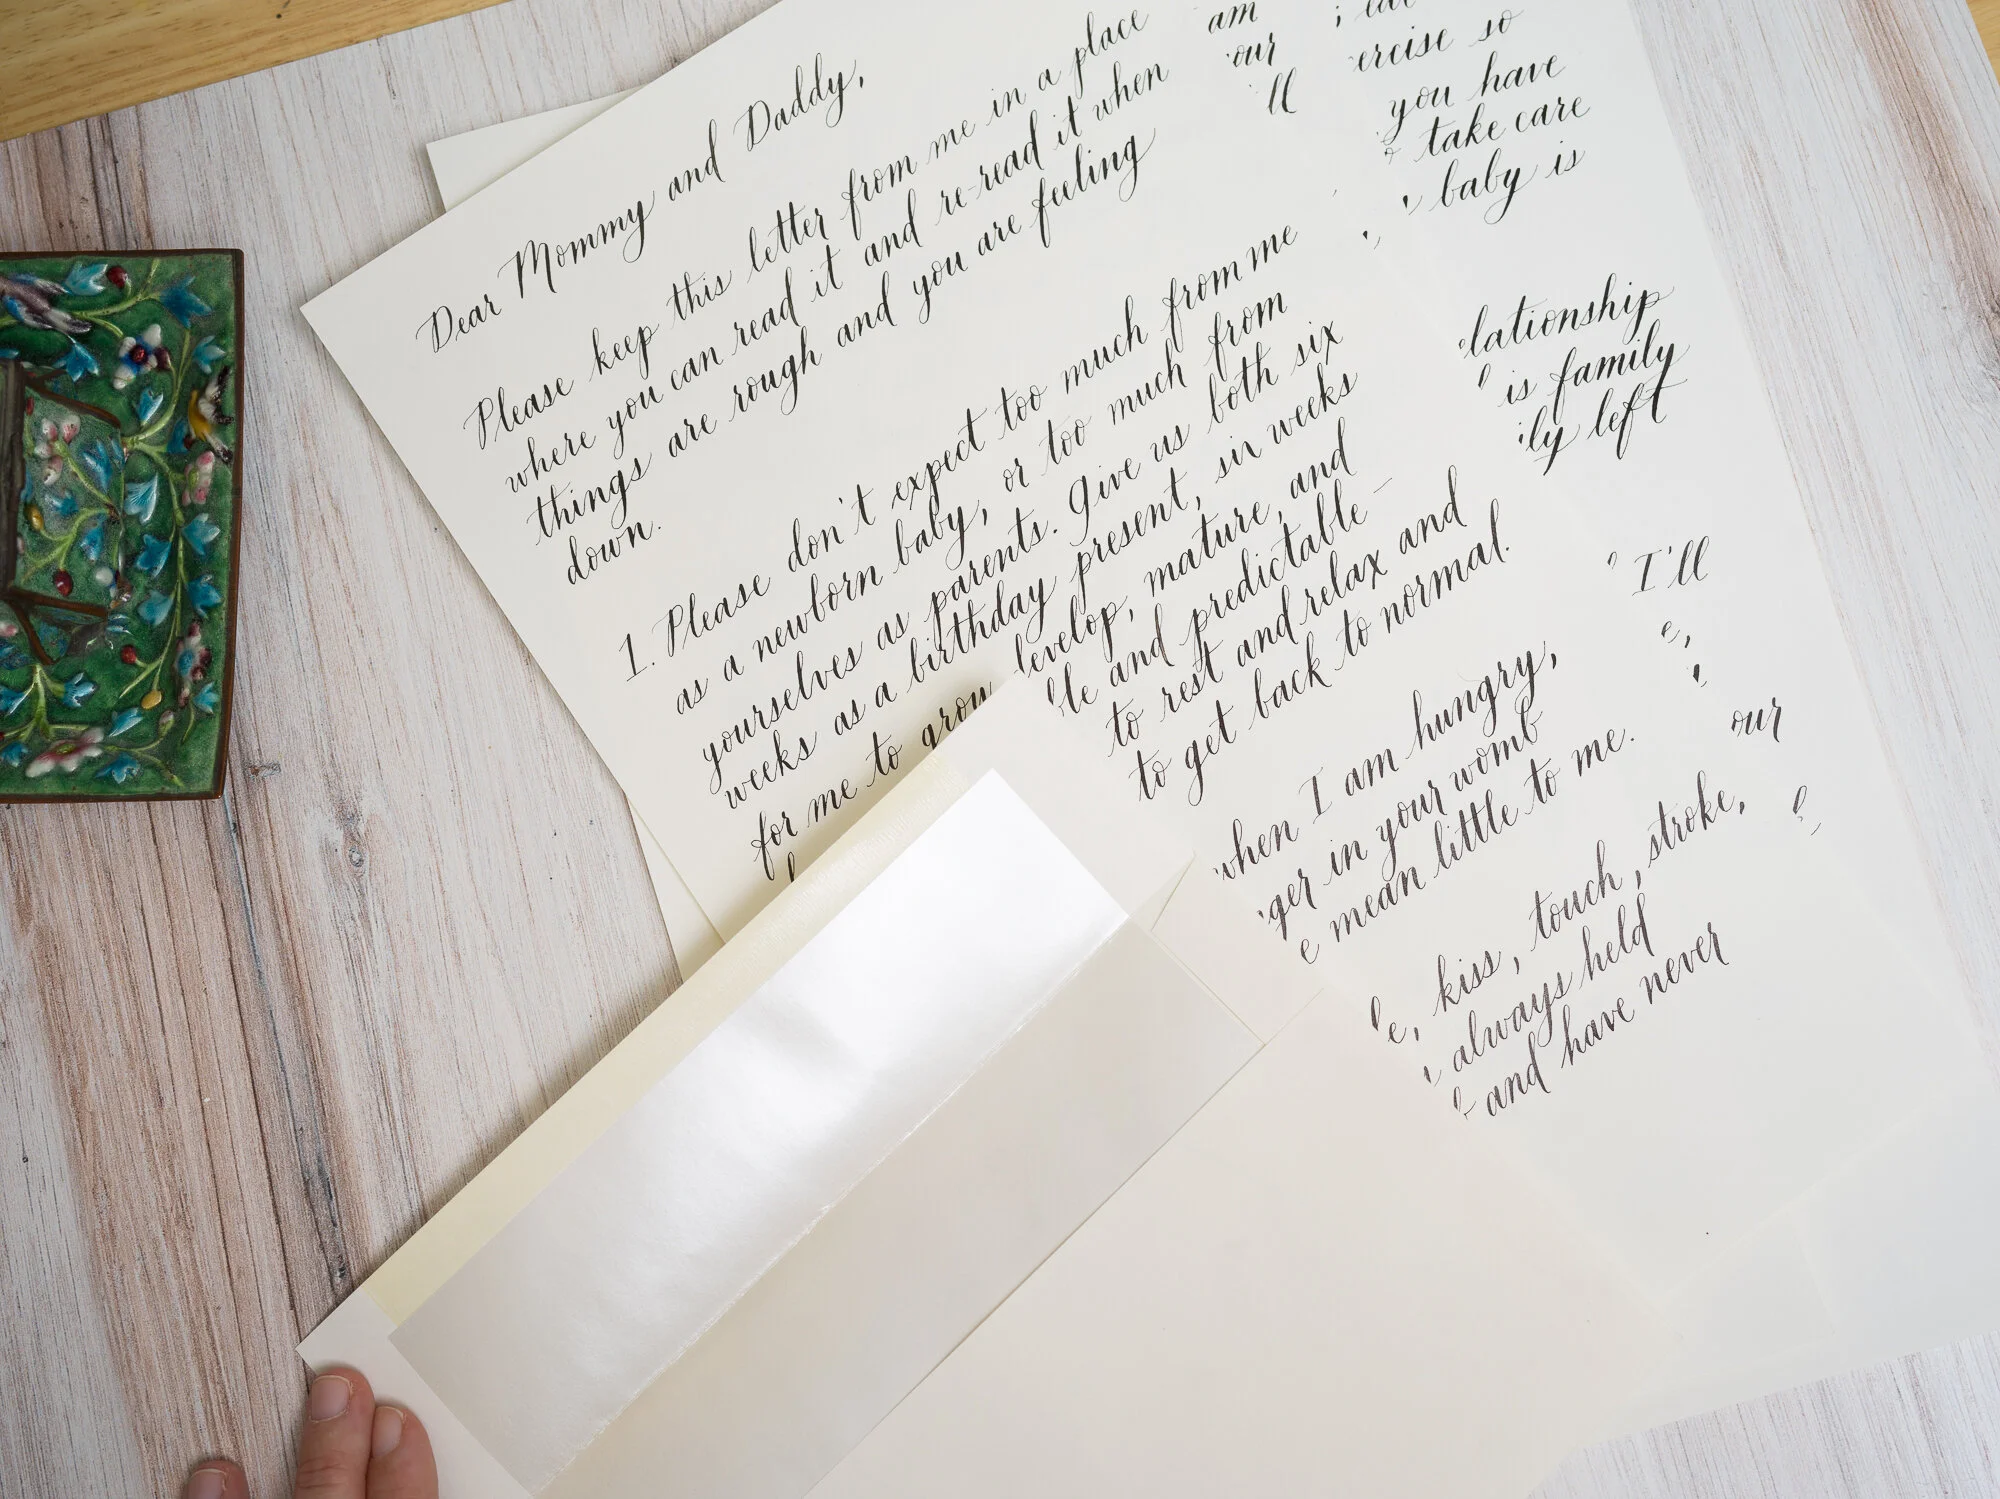 Dear Mommy and Daddy,
Please keep this letter from me in a place
where you can read it and re-read it when
things are rough and you are feeling
down.
1. Please don't expect too much from me
as a newborn baby, or too much from
yourselves as parents. Give us both six
weeks as a birthday present, six weeks
for me to grow, develop, mature, and
and predictable—
to rest and relax and
to get back to normal.
when I am hungry,
in your womb
mean little to me.
kiss, touch, stroke,
always held
and have never
am
so
you have
take care
baby is
is family
left
I'll